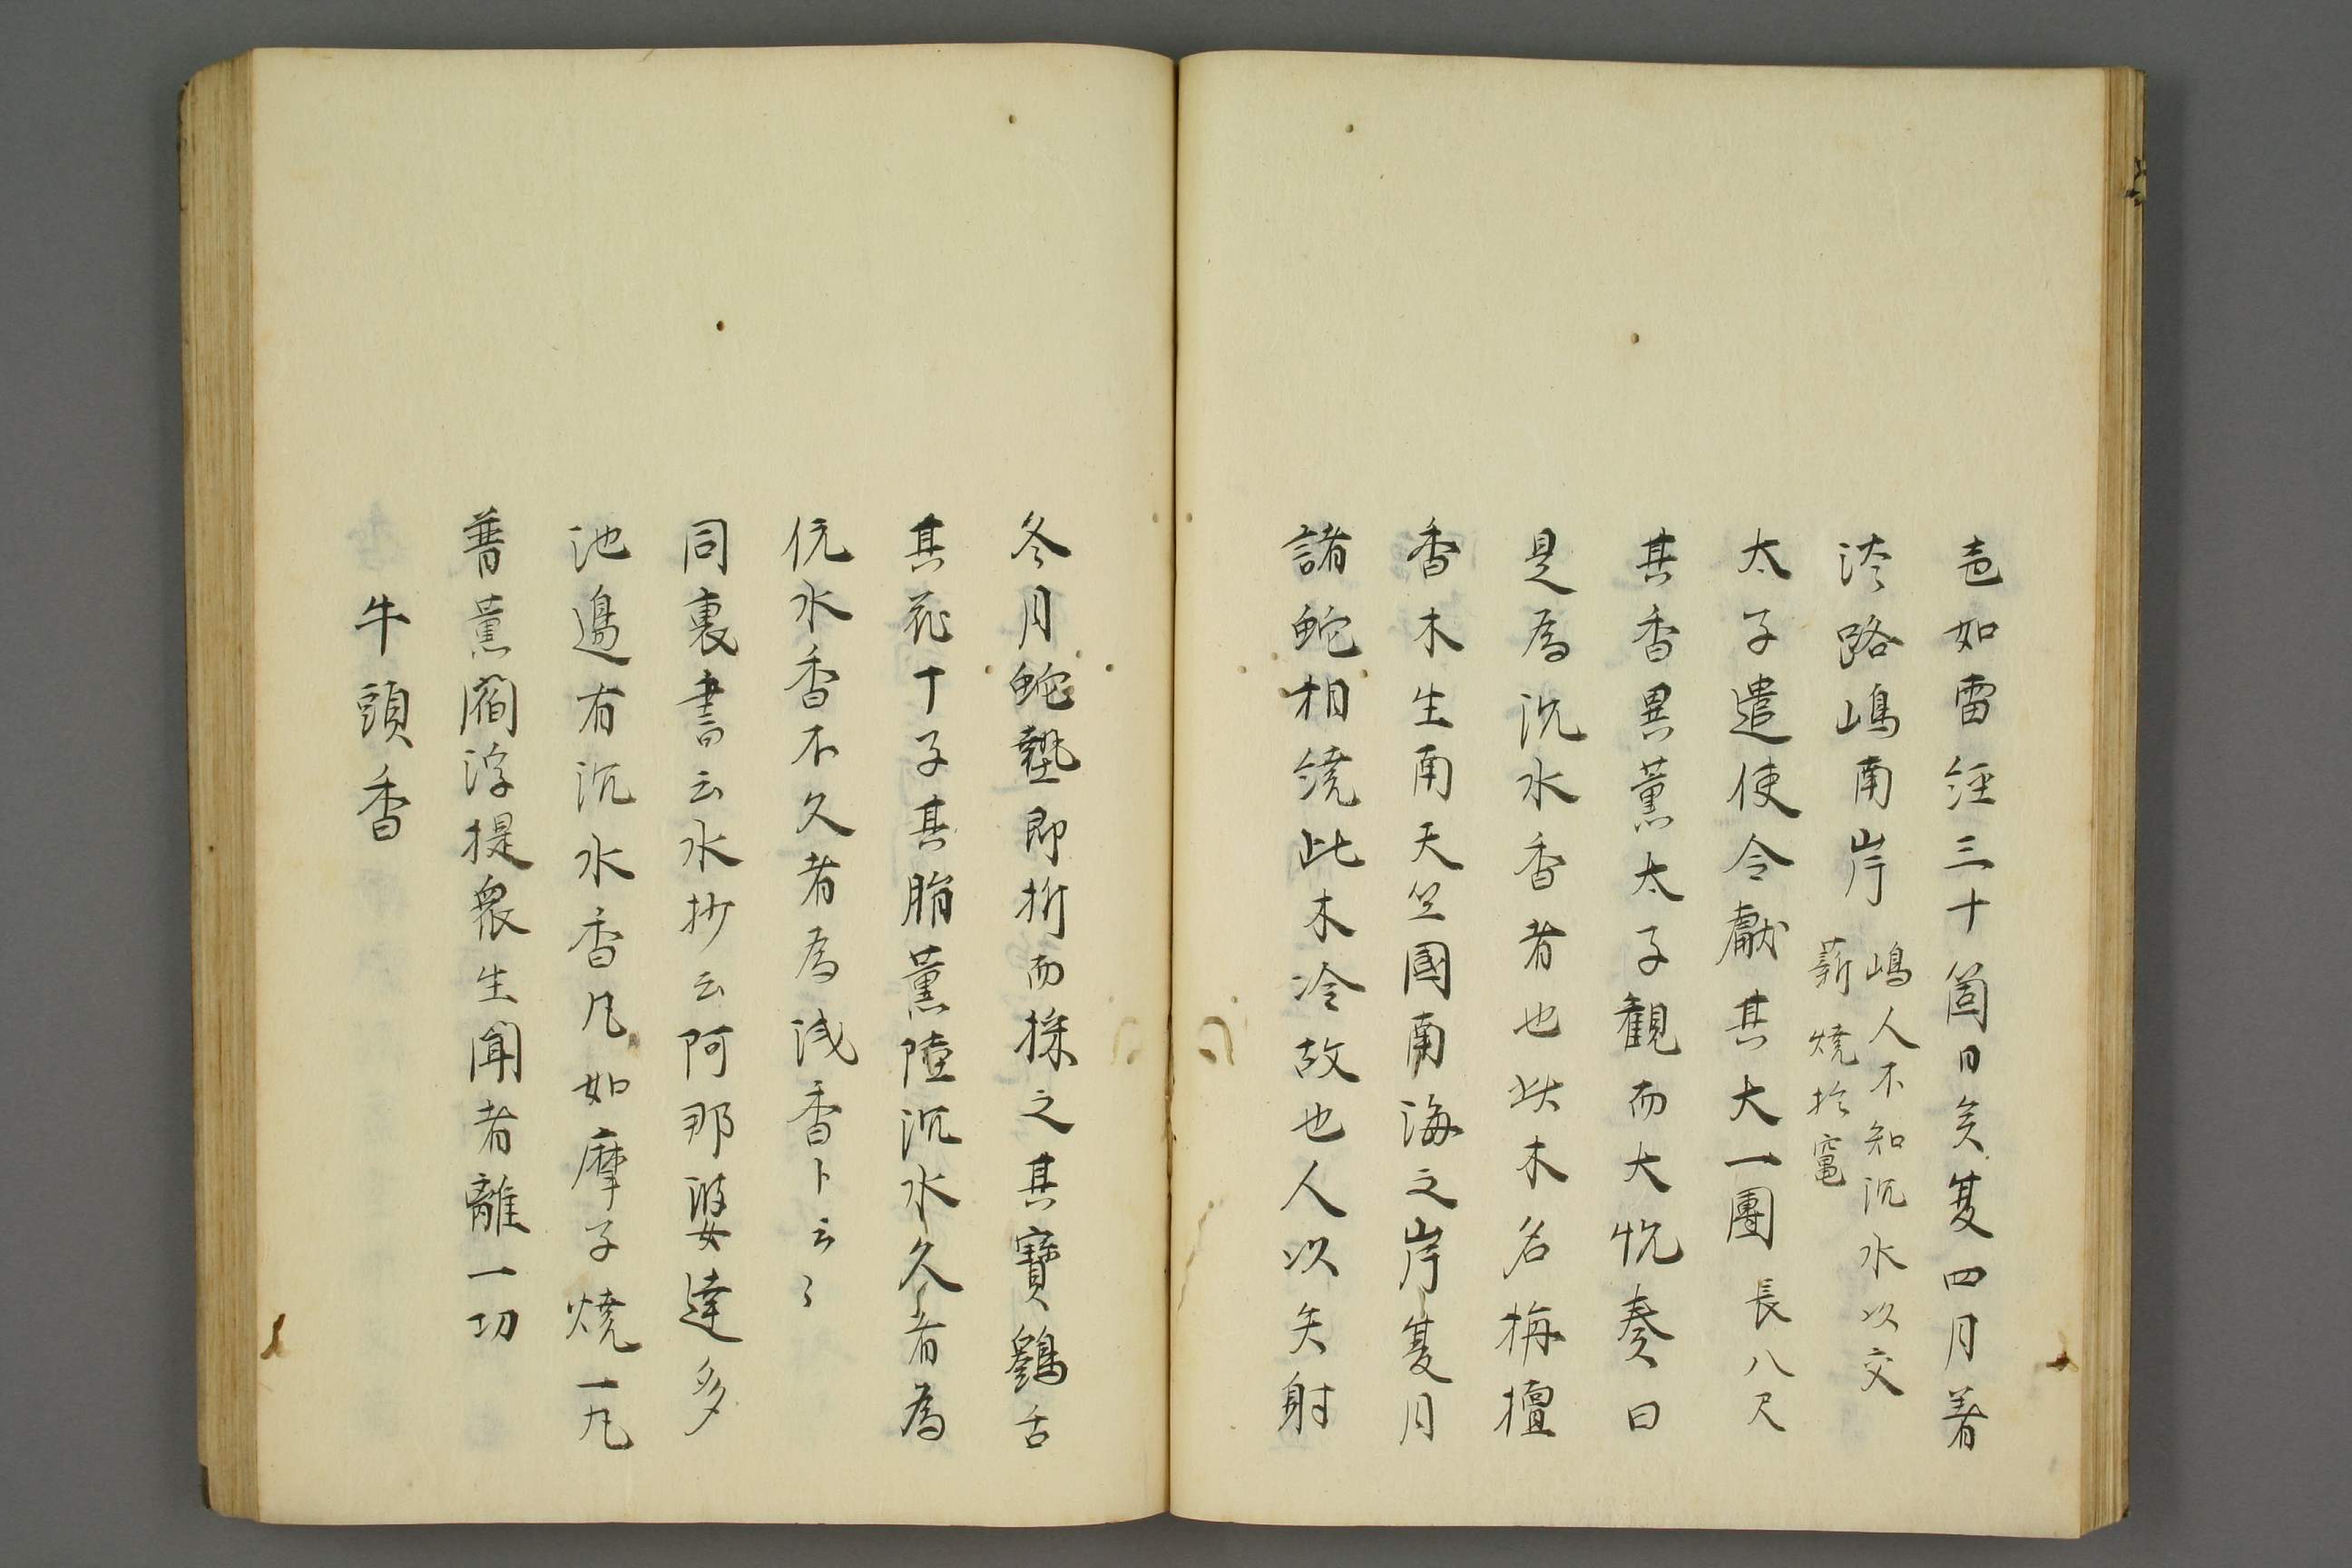 壱如雷経三十箇日矣夏四月着
淡路嶋南岸嶋人不知沉水以交
薪焼於竈
太子遣使令献其大一圍長八尺
其香異薫太子観而大恱奏曰
是為沉水香者也此木名栴檀
香木生南天竺國南海之岸夏月
諸蛇相繞此木冷故也人以矢射
冬月蛇蟄即折而採之其實鷄舌
其花丁子其脂薫陸沉水久者為
沉水香不久者為浅香卜云〻
同裏書云水抄云阿那婆達多
池邊有沉水香凡如摩子焼一丸
普薫閻浮提衆生聞者離一切
牛頭香